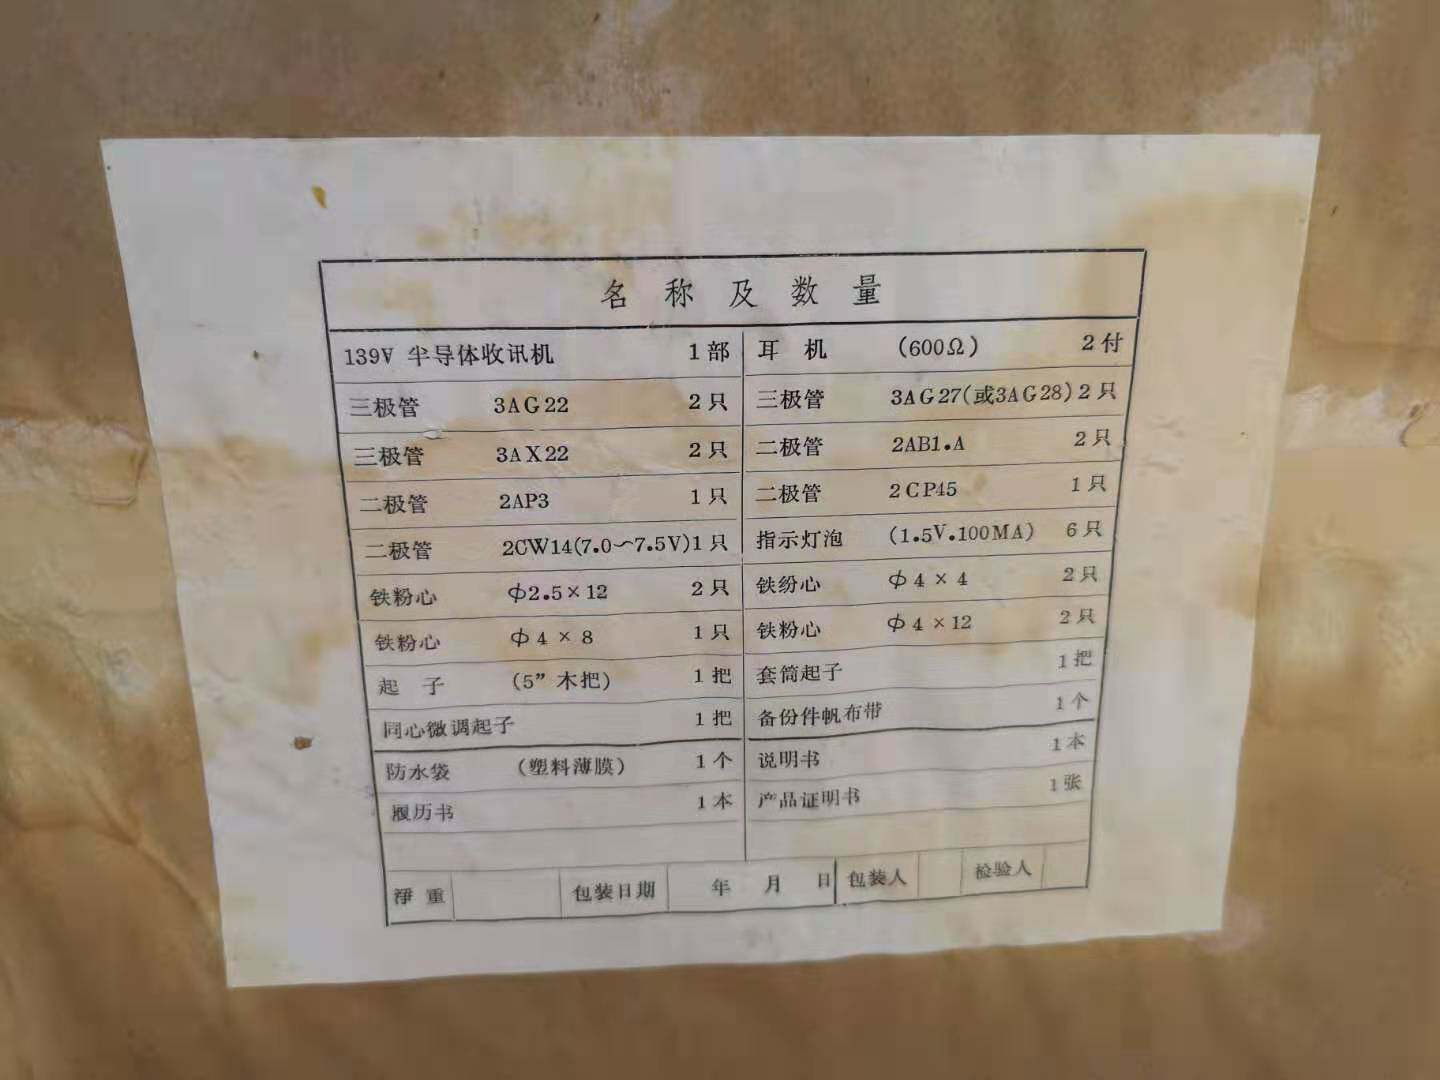 名称及数量
139V 半导体收讯机 1部 耳 机 (600Ω) 2付
三极管 3AG22 2只 三极管 3AG27(或3AG28) 2只
三极管 3AX22 2只 二极管 2AB1.A 2只
二极管 2AP3 1只 二极管 2CP45 1只
二极管 2CW14(7.0~7.5V) 1只 指示灯泡 (1.5V.100MA) 6只
铁粉心 φ2.5×12 2只 铁纷心 φ4×4 2只
铁粉心 φ4×8 1只 铁粉心 φ4×12 2只
起 子 (5”木把) 1把 套筒起子 1把
同心微调起子 1把 备份件帆布带 1个
防水袋 (塑料薄膜) 1个 说明书 1本
履历书 1本 产品证明书 1张
淨重 包装日期 年 月 日 包装人 检验人